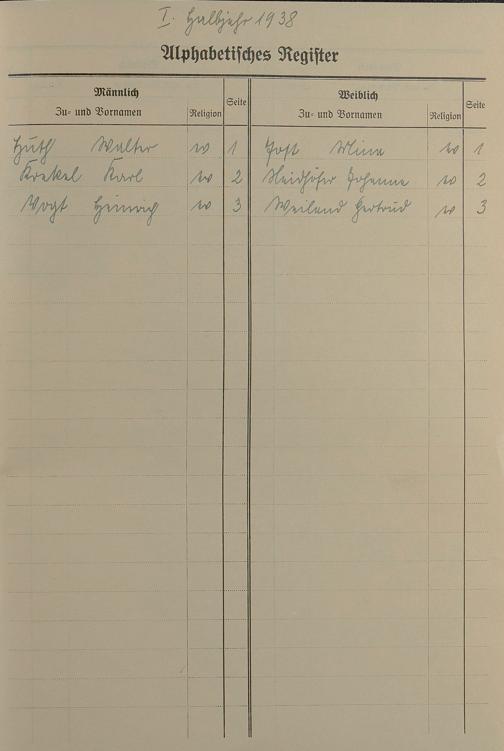 I. Halbjahr 1938
Alphabetisches Register
Männlich Weiblich
Zu- und Vornamen Religion Seite Zu- und Vornamen Religion Seite
Huth Walter w 1 Jost Mina w 1
Krekel Karl w 2 Neidhöfer Johanna w 2
Vogt Heinrich w 3 Weiland Gertrud w 3